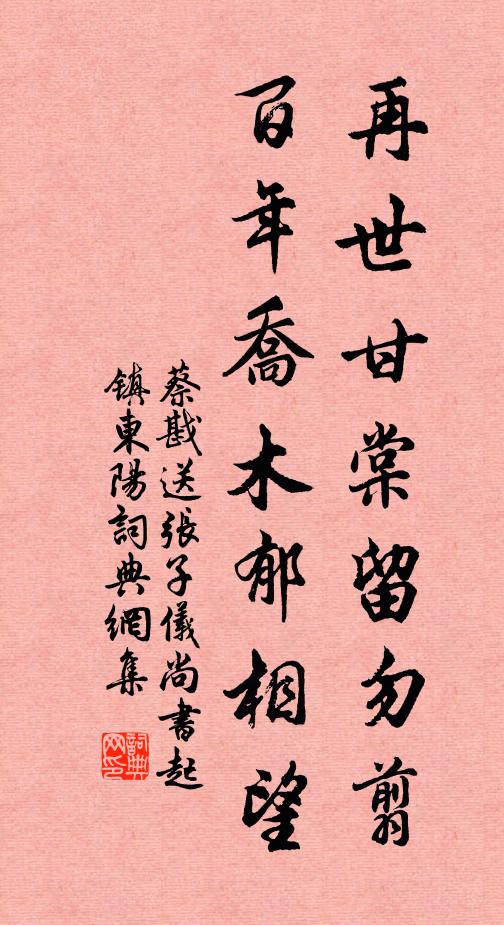 再世甘棠留勿翦
百年喬木郁相望
蔡戡送張子儀尚書起
鎮東陽詞典網集
詞典
网印